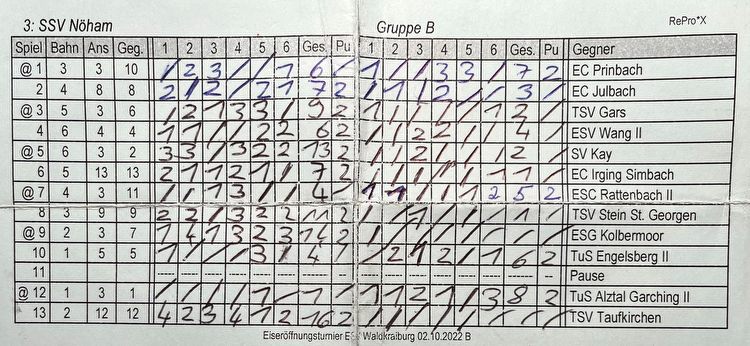 3: SSV Nöham Gruppe B RePro*X
Spiel Bahn Ans Geg. 1 2 3 4 5 6 Ges. Pu 1 2 3 4 5 6 Ges. Pu Gegner
@ 1 3 3 10 / 2 3 / / 1 6 / 1 / / 3 3 / 7 2 EC Prinbach
2 4 8 8 2 / 2 / 2 1 7 2 / 1 / 2 / / 3 / EC Julbach
@ 3 5 3 6 / 2 1 3 3 / 9 2 1 / / / / 1 2 / TSV Gars
4 6 4 4 1 1 / / 2 2 6 2 / / 2 2 / / 4 / ESV Wang II
@ 5 6 3 2 3 3 / 3 2 2 13 2 / / 2 / / / 2 / SV Kay
6 5 13 13 2 1 1 2 1 / 7 2 / / / / / 1 1 / EC Irging Simbach
@ 7 4 3 11 / / 1 3 / / 4 / 1 1 / / 1 2 5 2 ESC Rattenbach II
8 3 9 9 2 2 / 3 2 2 11 2 / / 1 / / / 1 / TSV Stein St. Georgen
@ 9 2 3 7 1 4 1 3 2 3 14 2 / / / / / / / / ESG Kolbermoor
10 1 5 5 1 / / / 3 / 4 / / 2 1 2 / 1 6 2 TuS Engelsberg II
11 ---- ---- ---- ---- ---- ---- ---- ---- ---- ---- ---- ---- ---- ---- ---- ---- Pause
@ 12 1 3 1 / / / / 1 / 1 / 1 1 2 1 / 3 8 2 TuS Alztal Garching II
13 2 12 12 4 2 3 4 1 2 16 2 / / / / / / / / TSV Taufkirchen
Eiseröffnungsturnier Waldkraiburg 02.10.2022 B